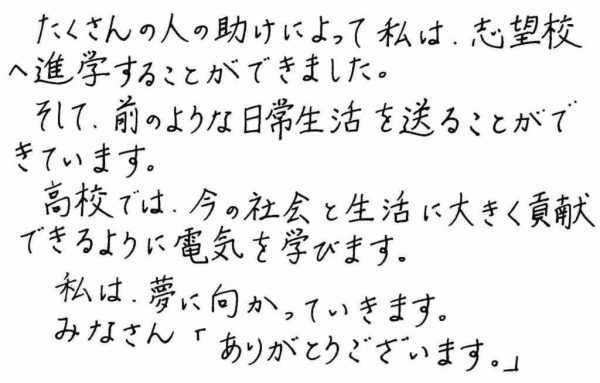 たくさんの人の助けによって私は、志望校
へ進学することができました。
そして、前のような日常生活を送ることがで
きています。
高校では、今の社会と生活に大きく貢献
できるように電気を学びます。
私は、夢に向かっていきます。
みなさん「ありがとうございます。」